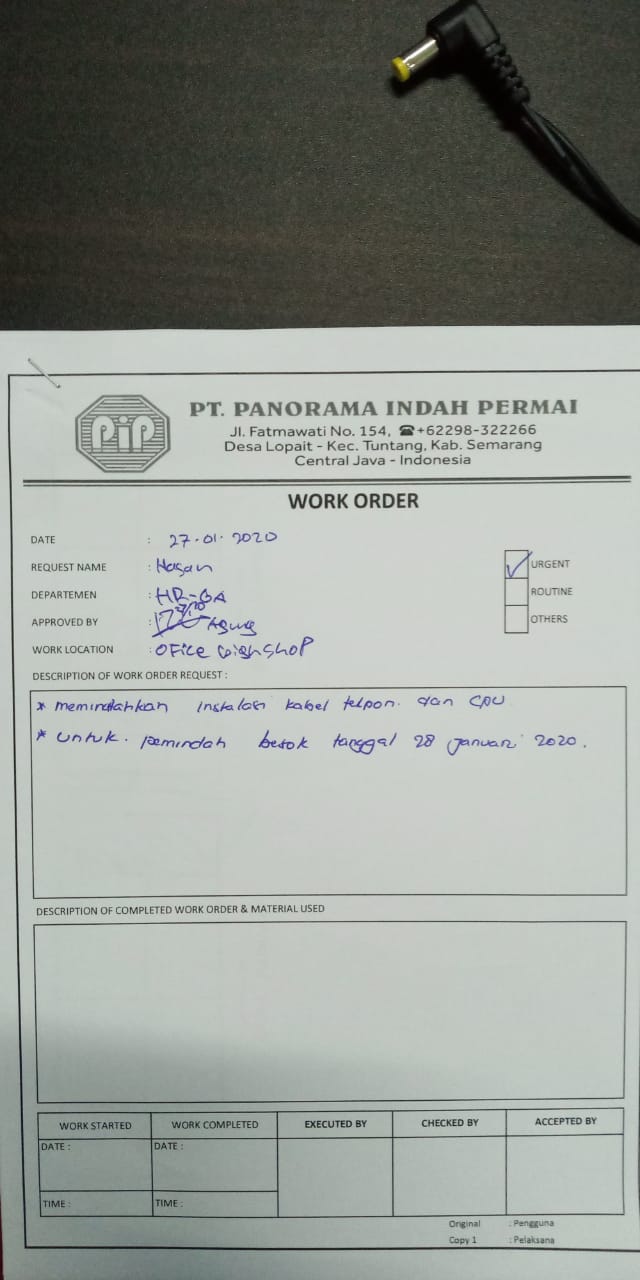 PiP
PT. PANORAMA INDAH PERMAI
Jl. Fatmawati No. 154, ☎+62298-322266
Desa Lopait - Kec. Tuntang, Kab. Semarang
Central Java - Indonesia
WORK ORDER
DATE : 27.01.2020
REQUEST NAME : Hasan
URGENT
DEPARTEMEN : HR-GA
ROUTINE
APPROVED BY : Agung
OTHERS
WORK LOCATION : OFFice
DESCRIPTION OF WORK ORDER REQUEST :
* memindahkan instalasi kabel telpon. dan CPU
* untuk. pemindah besok tanggal 28 januari 2020.
DESCRIPTION OF COMPLETED WORK ORDER & MATERIAL USED
WORK STARTED WORK COMPLETED EXECUTED BY CHECKED BY ACCEPTED BY
DATE : DATE :
TIME : TIME :
Original : Pengguna
Copy 1 : Pelaksana